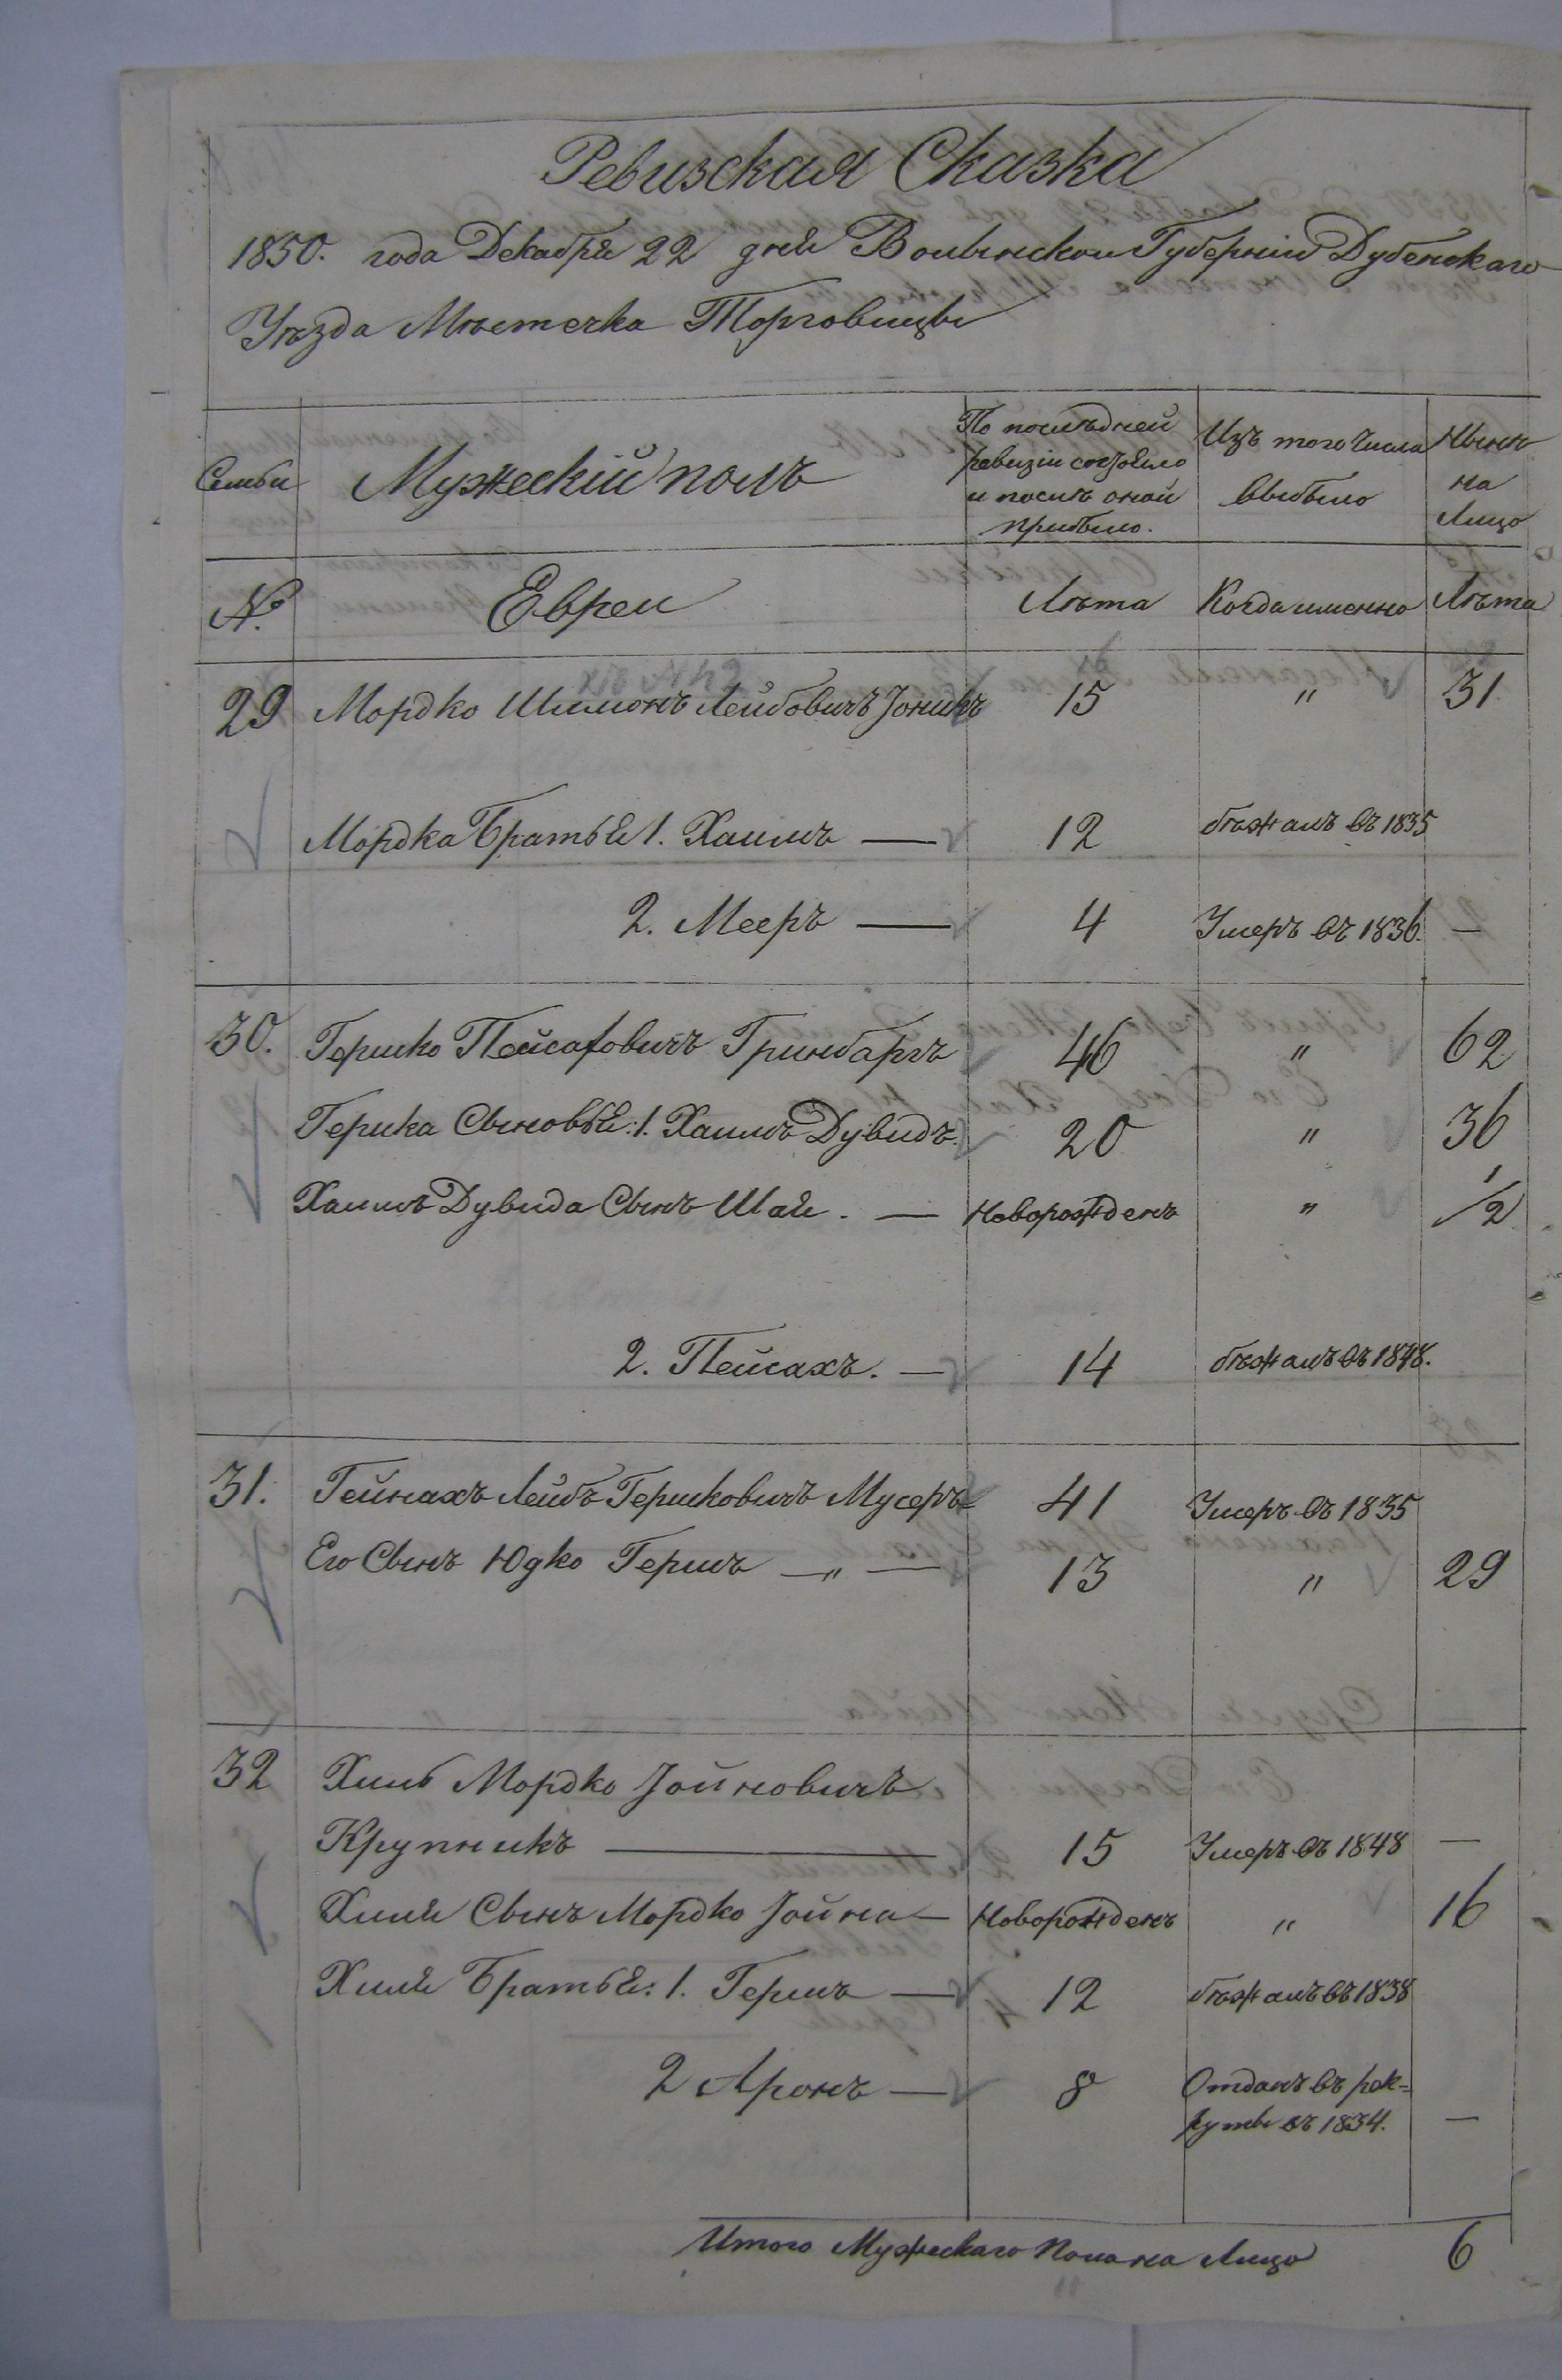 Ревизская Сказка
1850. года Декабря 22 дня Волынской Губерніи Дубенскаго
Уѣзда Мѣстечка Торговицы
Семьи Мужескій полъ По послѣдней ревизіи состояло и послѣ оной прибыло. Изъ того числа выбыло Нынѣ на Лицо
№ Евреи Лѣта Когда именно Лѣта
29 Мордко Шимонъ Лейбовичъ 15 " 31
Мордка Братья 1. Хаимъ — 12 бѣжалъ въ 1835
2. Мееръ — 4 Умеръ въ 1836. —
30. Гершко Пейсаховичъ Гринбаргъ 46 " 62
Гершка Сыновья: 1. Хаимъ Дувидъ. 20 " 36
Хаимъ Дувида Сынъ Шая. — Новорожденъ " 1/2
2. Пейсахъ. — 14 бѣжалъ въ 1848.
31. Гейнахъ Лейбъ Гершковичъ Мусеръ 41 Умеръ въ 1835
Его Сынъ Юдко Гершъ —„— 13 " 29
32 Хиль Мордко Іойновичъ
Крупникъ — 15 Умеръ въ 1848 —
Хиля Сынъ Мордко Іойна — Новорожденъ " 16
Хиля Братья: 1. Гершъ — 12 бѣжалъ въ 1838
2 Аронъ — 8 Отданъ въ рек=
руты въ 1834. —
Итого Мужескаго Пола на Лицо 6